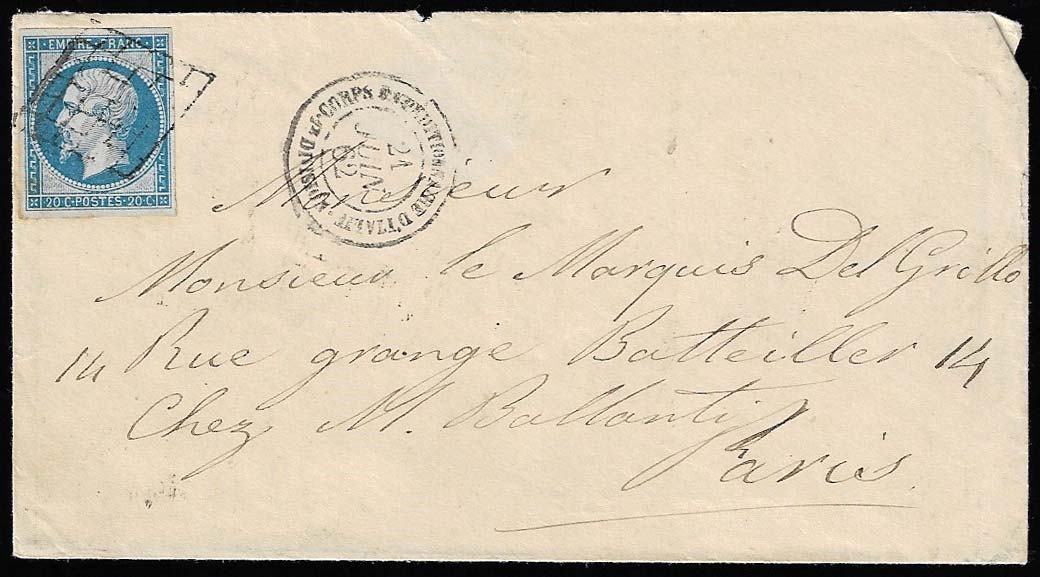 EMPIRE FRANC.
20 C·POSTES·20 C
CORPS EXPEDITIONNAIRE D'ITALIE
21
JUIN
62
Monsieur
Monsieur le Marquis Del Grillo
14 Rue grange Batteiller 14
Chez M. Ballanti
Paris